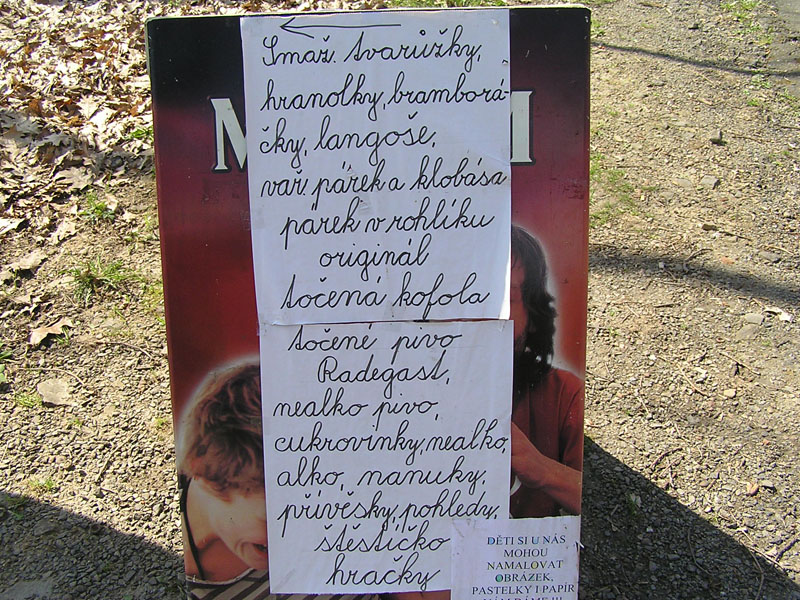 Smaž. tvarůžky,
hranolky, bramborá-
čky, langoše,
vař. párek a klobása
párek v rohlíku
originál
točená kofola
točené pivo
Radegast,
nealko pivo,
cukrovinky, nealko,
alko, nanuky,
přívěšky, pohledy,
štěstíčko
hračky
DĚTI SI U NÁS
MOHOU
NAMALOVAT
OBRÁZEK,
PASTELKY I PAPÍR